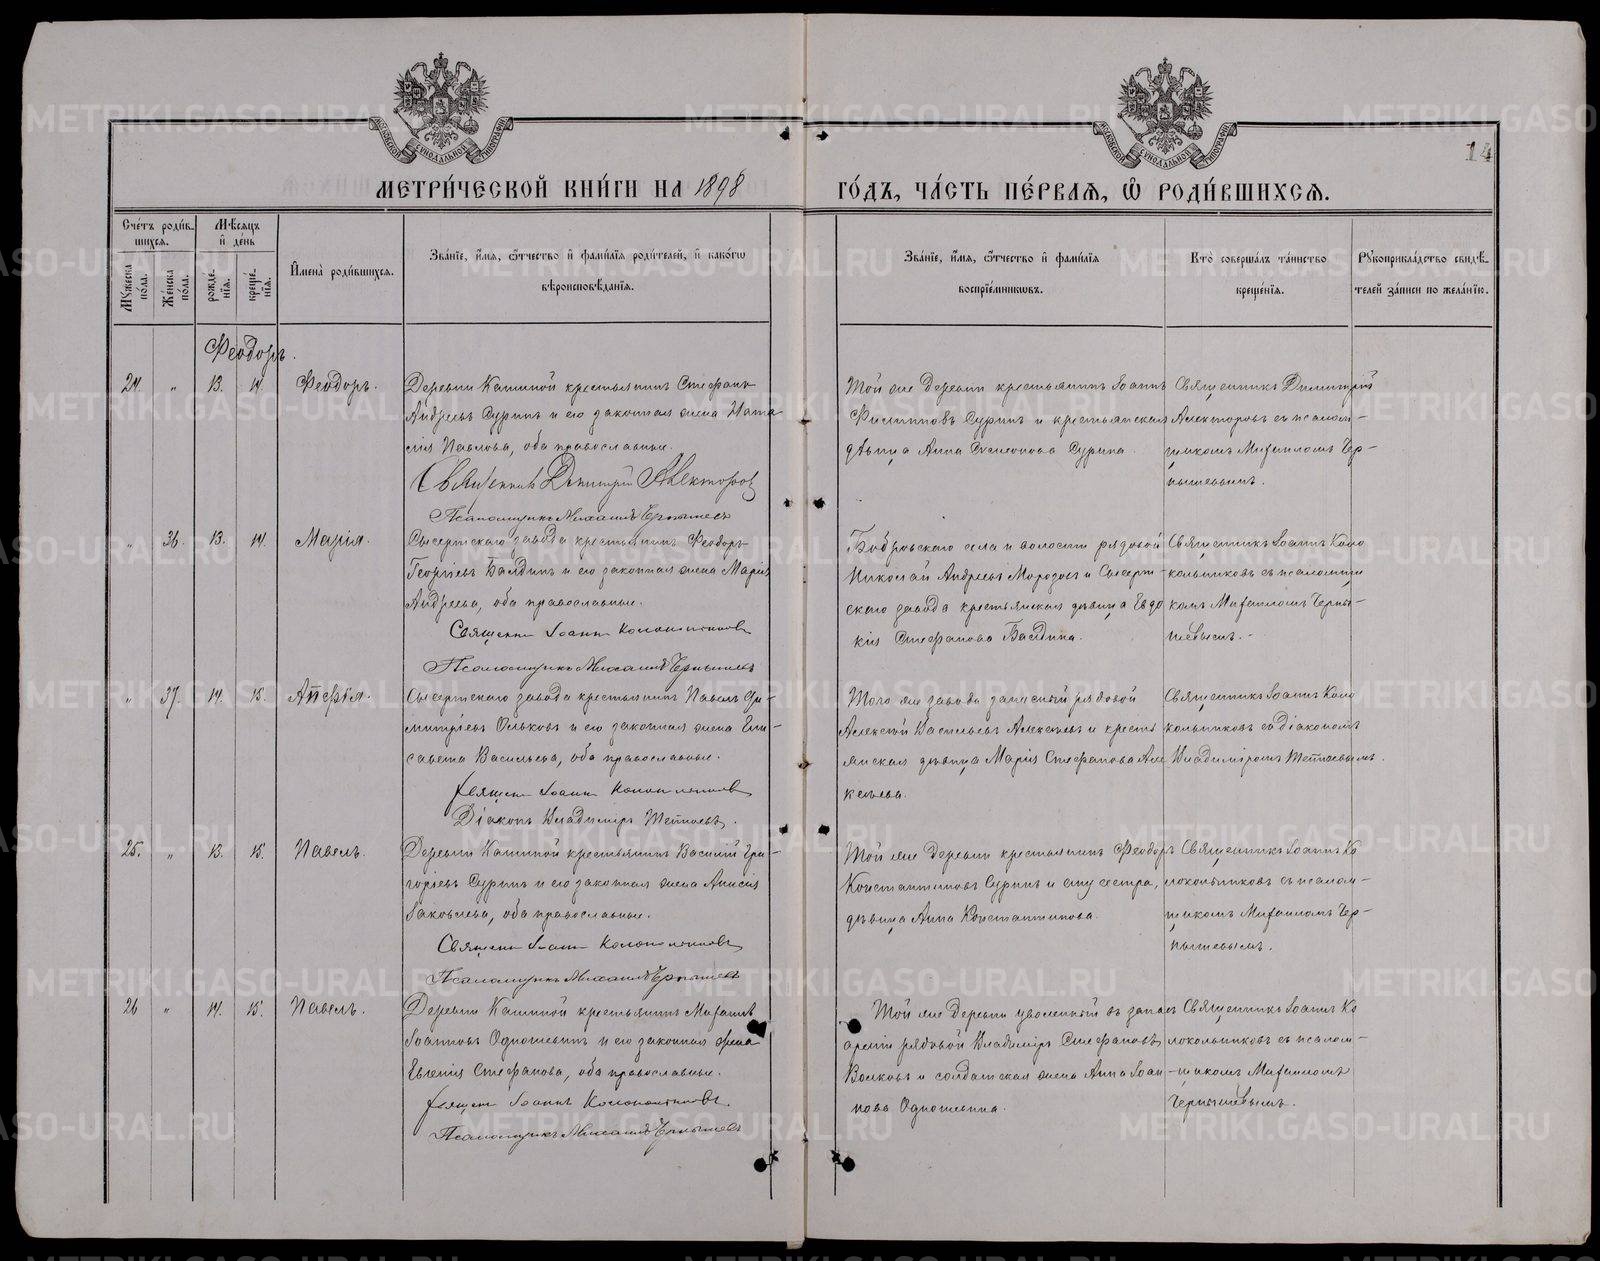 МЕТРИ́ЧЕСКОЙ КНИ́ГИ НА 1898 ГО́ДЪ, ЧА́СТЬ ПЕ́РВАЯ, Ѿ РОДИ́ВШИХСЯ.
14
Сче́тъ роди́вшихся.
Му́жеска по́ла.
Же́нска по́ла.
Мѣ́сяцъ и де́нь
рожде́нїя.
креще́нїя.
Имена̀ роди́вшихся.
Зва́нїе, и́мя, ѻ́тчество и фами́лїя роди́телей, и како́гѡ
вѣроисповѣ́данїя.
Зва́нїе, и́мя, ѻ́тчество и фами́лїя
воспрїе́мникѡвъ.
Кто̀ соверша́лъ та́инство
креще́нїя.
Рꙋкоприкла́дство свидѣ́телей за́писи по жела́нїю.
Ѳеодоръ.
24. „ 13. 14. Ѳеодоръ.
Деревни Кашиной крестьянинъ Стефанъ
Андреевъ Суринъ и его законная жена Ната
лія Павлова, оба православные.
Священникъ Димитрій Алекторовъ
Псаломщикъ Михаилъ Чернышевъ
Той же деревни крестьянинъ Іоаннъ
Филипповъ Суринъ и крестьянская
дѣвица Анна Сурина.
Священникъ Димитрій
Алекторовъ съ псалом-
щикомъ Михаиломъ Чер-
нышевымъ.
„ 36. 13. 14. Марія.
Сысертскаго завода крестьянинъ Ѳеодоръ
Георгіевъ Балдинъ и его законная жена Марія
Андреева, оба православные.
Священник Іоанн Колокольников
Псаломщикъ Михаилъ Чернышевъ
Бобровскаго села и волости рядовой
Николай Андреевъ Морозовъ и Сысерт-
скаго завода крестьянская дѣвица Евдо
кія Стефанова Балдина.
Священникъ Іоаннъ Коло
кольниковъ съ псаломщи
комъ Михаиломъ Черны-
шевымъ.
„ 37. 14. 15. Анфія.
Сысертскаго завода крестьянинъ Павелъ Ди-
митріевъ Ольковъ и его законная жена Ели-
савета Васильева, оба православные.
Священ Іоанн Колокольников
Діаконъ Владиміръ
Того же завода запасный рядовой
Алексѣй Васильевъ Алексѣевъ и кресть
янская дѣвица Марія Стефанова Але
ксѣева.
Священникъ Іоаннъ Коло
кольниковъ съ діакономъ
Владиміромъ
25. „ 13. 15. Павелъ.
Деревни Кашиной крестьянинъ Василій Гри-
горіевъ Суринъ и его законная жена Анисія
Іаковлева, оба православные.
Священ Іоанн Колокольников
Псаломщикъ Михаилъ Чернышевъ
Той же деревни крестьянинъ Ѳеодоръ
Константиновъ Суринъ и ему сестра,
дѣвица Анна Константинова.
Священникъ Іоаннъ Ко
локольниковъ съ псалом-
щикомъ Михаиломъ Чер-
нышевымъ.
26 „ 14. 15. Павелъ.
Деревни Кашиной крестьянинъ Михаилъ
Іоанновъ Одношевинъ и его законная жена
Евгенія Стефанова, оба православные.
Священ Іоаннъ Колокольниковъ
Псаломщикъ Михаилъ Чернышевъ
Той же деревни уволенный въ запасъ
арміи рядовой Владиміръ Стефановъ
Волковъ и солдатская жена Анна Іоан-
нова Одношевина.
Священникъ Іоаннъ Ко
локольниковъ съ псалом-
щикомъ Михаиломъ
Чернышевымъ.
METRIKI.GASO-URAL.RU